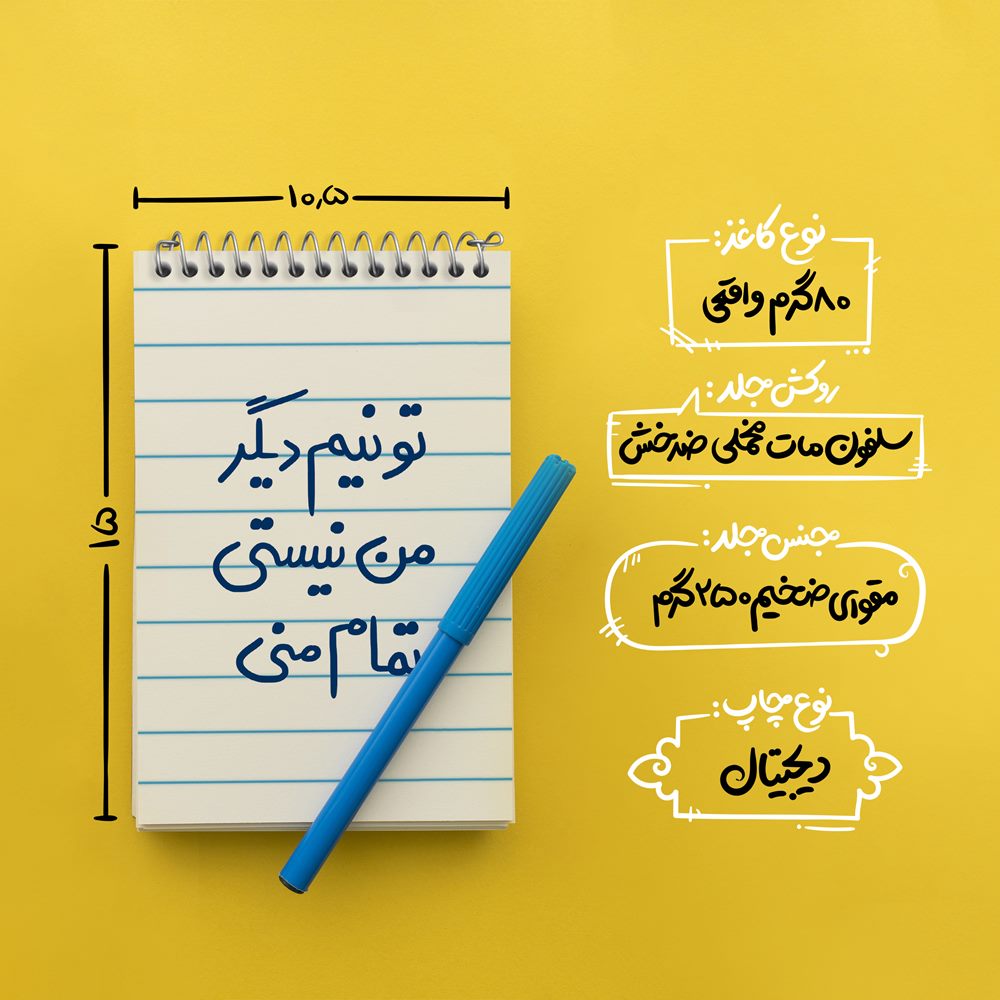 ۱۰٫۵
۱۵
تو نیم دیگر
من نیستی
تمام منی
نوع کاغذ:
۸۰گرم واقعی
روکش جلد:
سلفون مات مخملی ضدخش
جنس جلد:
مقوای ضخیم ۲۵۰گرم
نوع چاپ:
دیجیتال